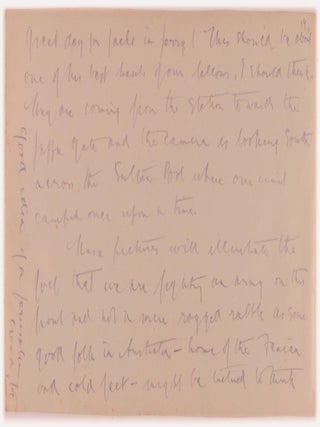 Great day for Jacks in                   ! This should be about
one of the best hauls of our fellows, I should think.
They are coming from the station towards the
Jaffa gate and the camera is looking South
across the Sultan Pool where our                   
camped once upon a time.
These pictures will illustrate the
fact that we are fighting an army on this
front and not a mere ragged rabble as some
good folk in Australia - home of the Fenian
and cold feet - might be inclined to think
Good idea of a                    crowd, too